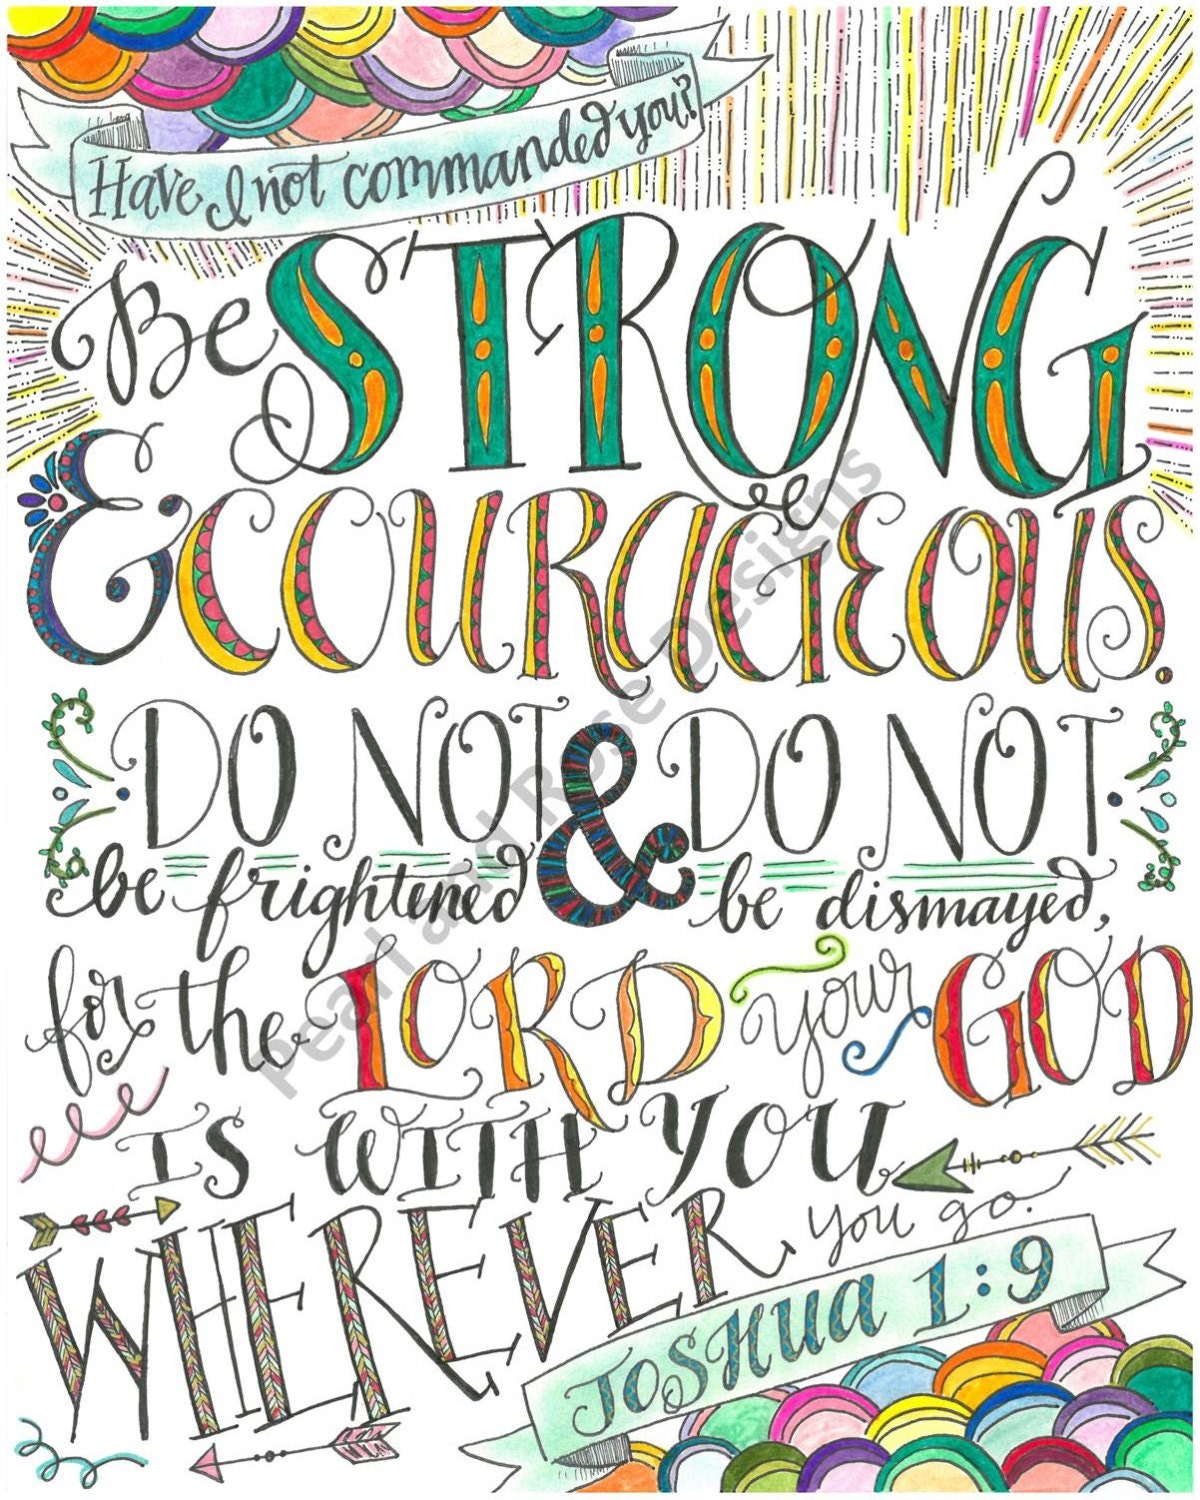 Have I not commanded you?
Be STRONG
& COURAGEOUS.
DO NOT & DO NOT
be frightened be dismayed,
for the LORD your GOD
IS WITH YOU
WHEREVER you go.
JOSHUA 1:9
Pearl and Rose Designs